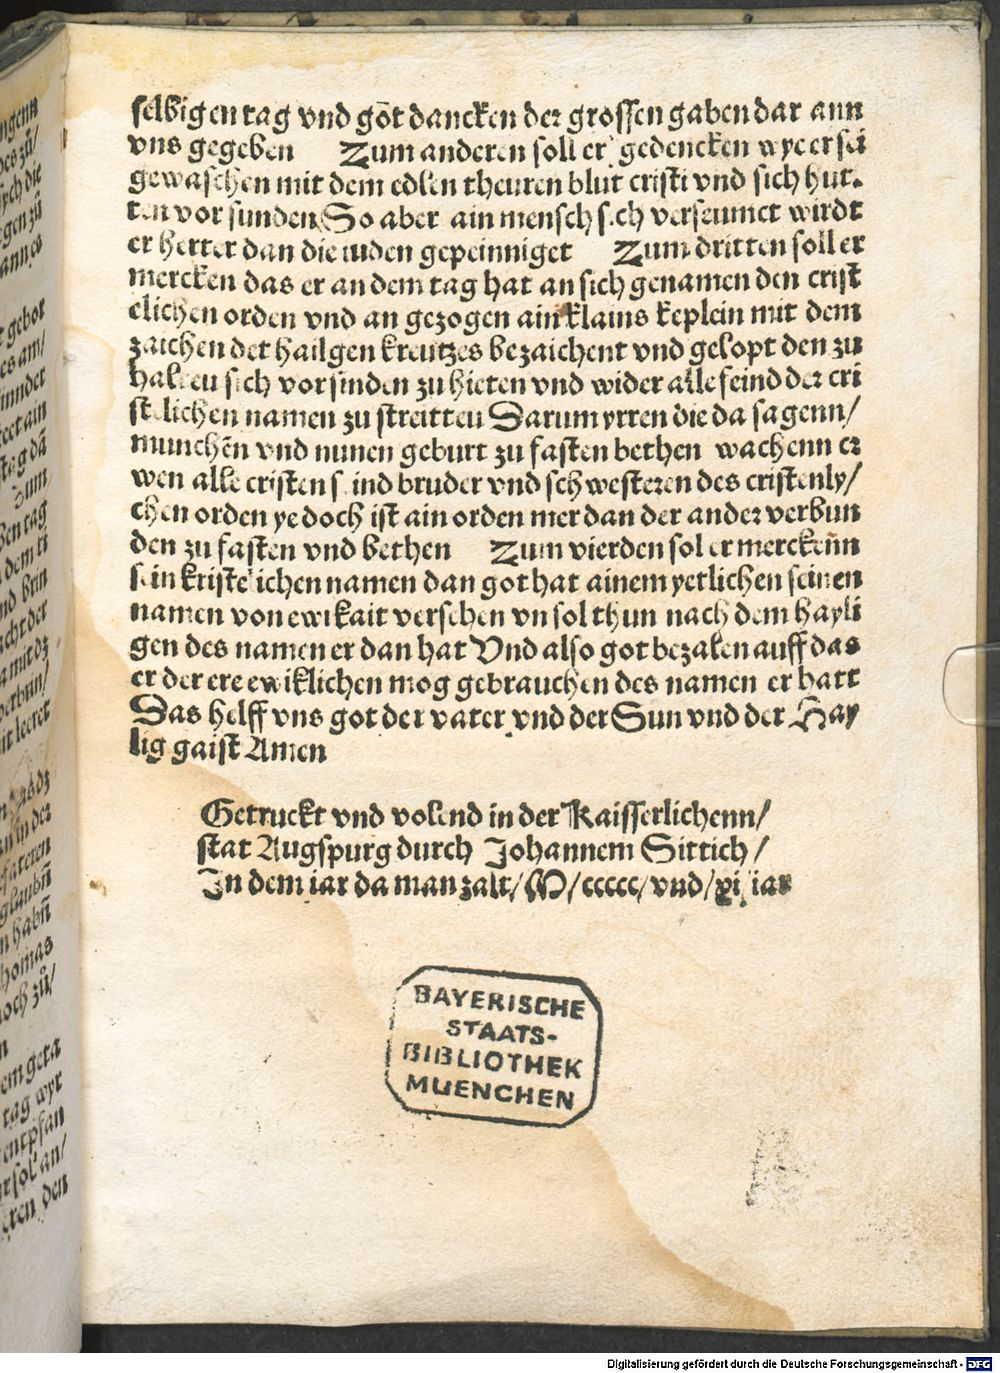 selbigen tag vnd got dancken der grossen gaben dar ann
vns gegeben Zum anderen soll er gedencken wye er sei
gewaschen mit dem edlen theuren blut cristi vnd sich hut-
ten vor sunden So aber ain mensch sich verseumet wirdt
er herter dan die iuden gepeinniget Zum dritten soll er
mercken das er an dem tag hat an sich genamen den crist
elichen orden vnd an gezogen ain klains keplein mit dem
zaichen det hailgen kreutzes bezaichent vnd gelopt den zu
halten sich vor sinden zu hieten vnd wider alle feind der cri
stelichen namen zu streitten Darum yrren die da sagenn/
munchēn vnd nunen geburt zu fasten bethen wachenn er
wen alle cristen sind bruder vnd schwesteren des cristenly/
chen orden ye doch ist ain orden mer dan der ander verbun
den zu fasten vnd bethen Zum vierden sol er merckenn
sein kristelichen namen dan got hat ainem yetlichen seinen
namen von ewikait versehen vn sol thun nach dem hayli
gen des namen er dan hat Vnd also got bezalen auff das
er der ere ewiklichen mog gebrauchen des namen er hatt
Das helff vns got der vater vnd der Sun vnd der Hay
lig gaist Amen
Getruckt vnd volend in der Kaisserlichenn/
stat Augspurg durch Johannem Sittich/
In dem iar da man zalt/M/ccccc/vnd/xi/iar
BAYERISCHE
STAATS-
BIBLIOTHEK
MUENCHEN
Digitalisierung gefördert durch die Deutsche Forschungsgemeinschaft - DFG